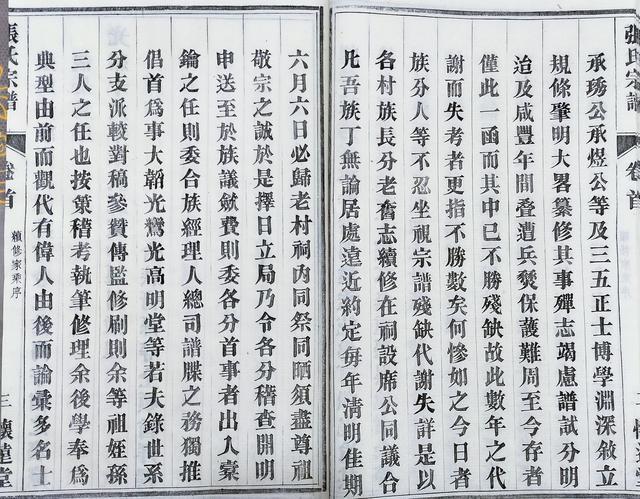 張氏宗譜
卷首
承琇公承煜公等及三五正士博學淵深敘立
規條肇明大畧纂修其事殫志竭慮譜試分明
迨及咸豐年間叠遭兵燹保護難周至今存者
僅此一函而其中已不勝殘缺故此數年之代
謝而失考者更指不勝數矣何慘如之今日者
族分人等不忍坐視宗譜殘缺代謝失詳是以
各村族長分老奮志續修在祠設席公同議合
凡吾族丁無論居處遠近約定每年清明佳期
六月六日必歸老村祠內同祭同晒須盡尊祖
敬宗之誠於是擇日立局乃令各分稽查開明
申送至於族議斂費則委各分首事者出入槖
鑰之任則委合族經理人總司譜牒之務獨推
倡首爲事大韜光鶯光高明堂等若夫錄世系
分支派載對稿參贊傳監修刷則余等祖姪孫
三人之任也按策稽考執筆修理余後學奉爲
典型由前而觀代有偉人由後而論彙多名士
張氏宗譜
卷首
續修家乘序
三
懷遠堂